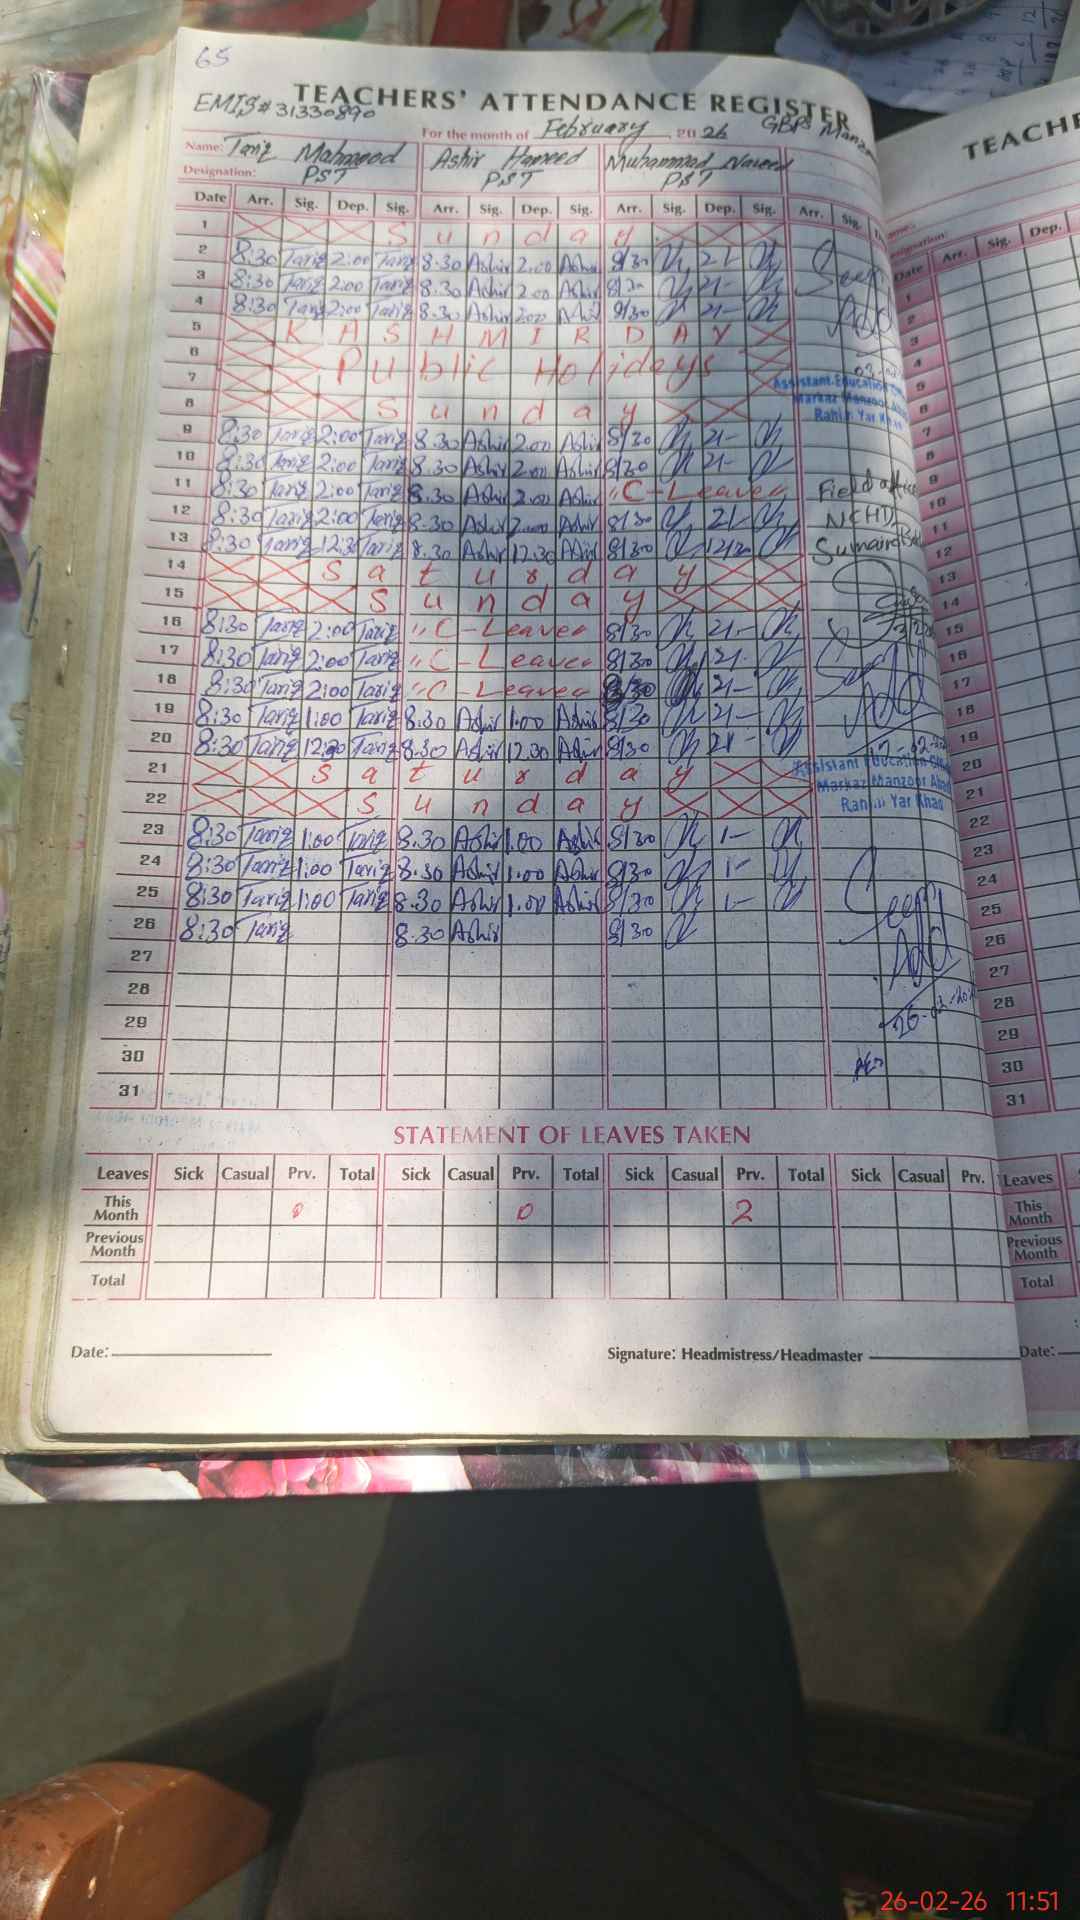 65
TEACHERS' ATTENDANCE REGISTER
EMIS# 31330890
For the month of February, 2026 GBPS
Name: Tariq Mahmood Ashir Hameed Muhammad Naveed
Designation: PST PST PST
Date Arr. Sig. Dep. Sig. Arr. Sig. Dep. Sig. Arr. Sig. Dep. Sig. Arr. Sig.
1 Sunday
2 8:30 Tariq 2:00 Tariq 8.30 Ashir 2.00 Ashir 8/30 2/-
3 8:30 Tariq 2:00 Tariq 8.30 Ashir 2.00 Ashir 8/30 2/-
4 8:30 Tariq 2:00 Tariq 8.30 Ashir 2.00 Ashir 8/30 2/-
5 KASHMIR DAY
6
7 Public Holidays
8 Sunday
Assistant Education
Markaz Manzoor
Rahim Yar Khan
9 8:30 Tariq 2:00 Tariq 8.30 Ashir 2.00 Ashir 8/30 2/-
10 8:30 Tariq 2:00 Tariq 8.30 Ashir 2.00 Ashir 8/30 2/-
11 8:30 Tariq 2:00 Tariq 8.30 Ashir 2.00 Ashir "C-Leave" Field
12 8:30 Tariq 2:00 Tariq 8.30 Ashir 2.00 Ashir 8/30 2/- NCHD
13 8:30 Tariq 12:30 Tariq 8.30 Ashir 12.30 Ashir 8/30 12/30 Sumaira
14 Saturday
15 Sunday
16 8:30 Tariq 2:00 Tariq "C-Leave" 8/30 2/-
17 8:30 Tariq 2:00 Tariq "C-Leave" 8/30 2/-
18 8:30 Tariq 2:00 Tariq "C-Leave" 8/30 2/-
19 8:30 Tariq 1:00 Tariq 8.30 Ashir 1.00 Ashir 8/30 2/-
20 8:30 Tariq 12:30 Tariq 8.30 Ashir 12.30 Ashir 8/30 2/-
21 Saturday
22 Sunday
Assistant Education
Markaz Manzoor Abad
Rahim Yar Khan
23 8:30 Tariq 1:00 Tariq 8.30 Ashir 1.00 Ashir 8/30 1-
24 8:30 Tariq 1:00 Tariq 8.30 Ashir 1.00 Ashir 8/30 1-
25 8:30 Tariq 1:00 Tariq 8.30 Ashir 1.00 Ashir 8/30 1-
26 8:30 Tariq 8.30 Ashir 8/30
27
28
29
30
31
STATEMENT OF LEAVES TAKEN
Leaves Sick Casual Prv. Total Sick Casual Prv. Total Sick Casual Prv. Total Sick Casual Prv.
This Month 0 0 2
Previous Month
Total
Date: Signature: Headmistress/Headmaster
Date Arr. Sig. Dep.
1
2
3
4
5
6
7
8
9
10
11
12
13
14
15
16
17
18
19
20
21
22
23
24
25
26
27
28
29
30
31
Leaves
This Month
Previous Month
Total
Date:
26-02-26 11:51